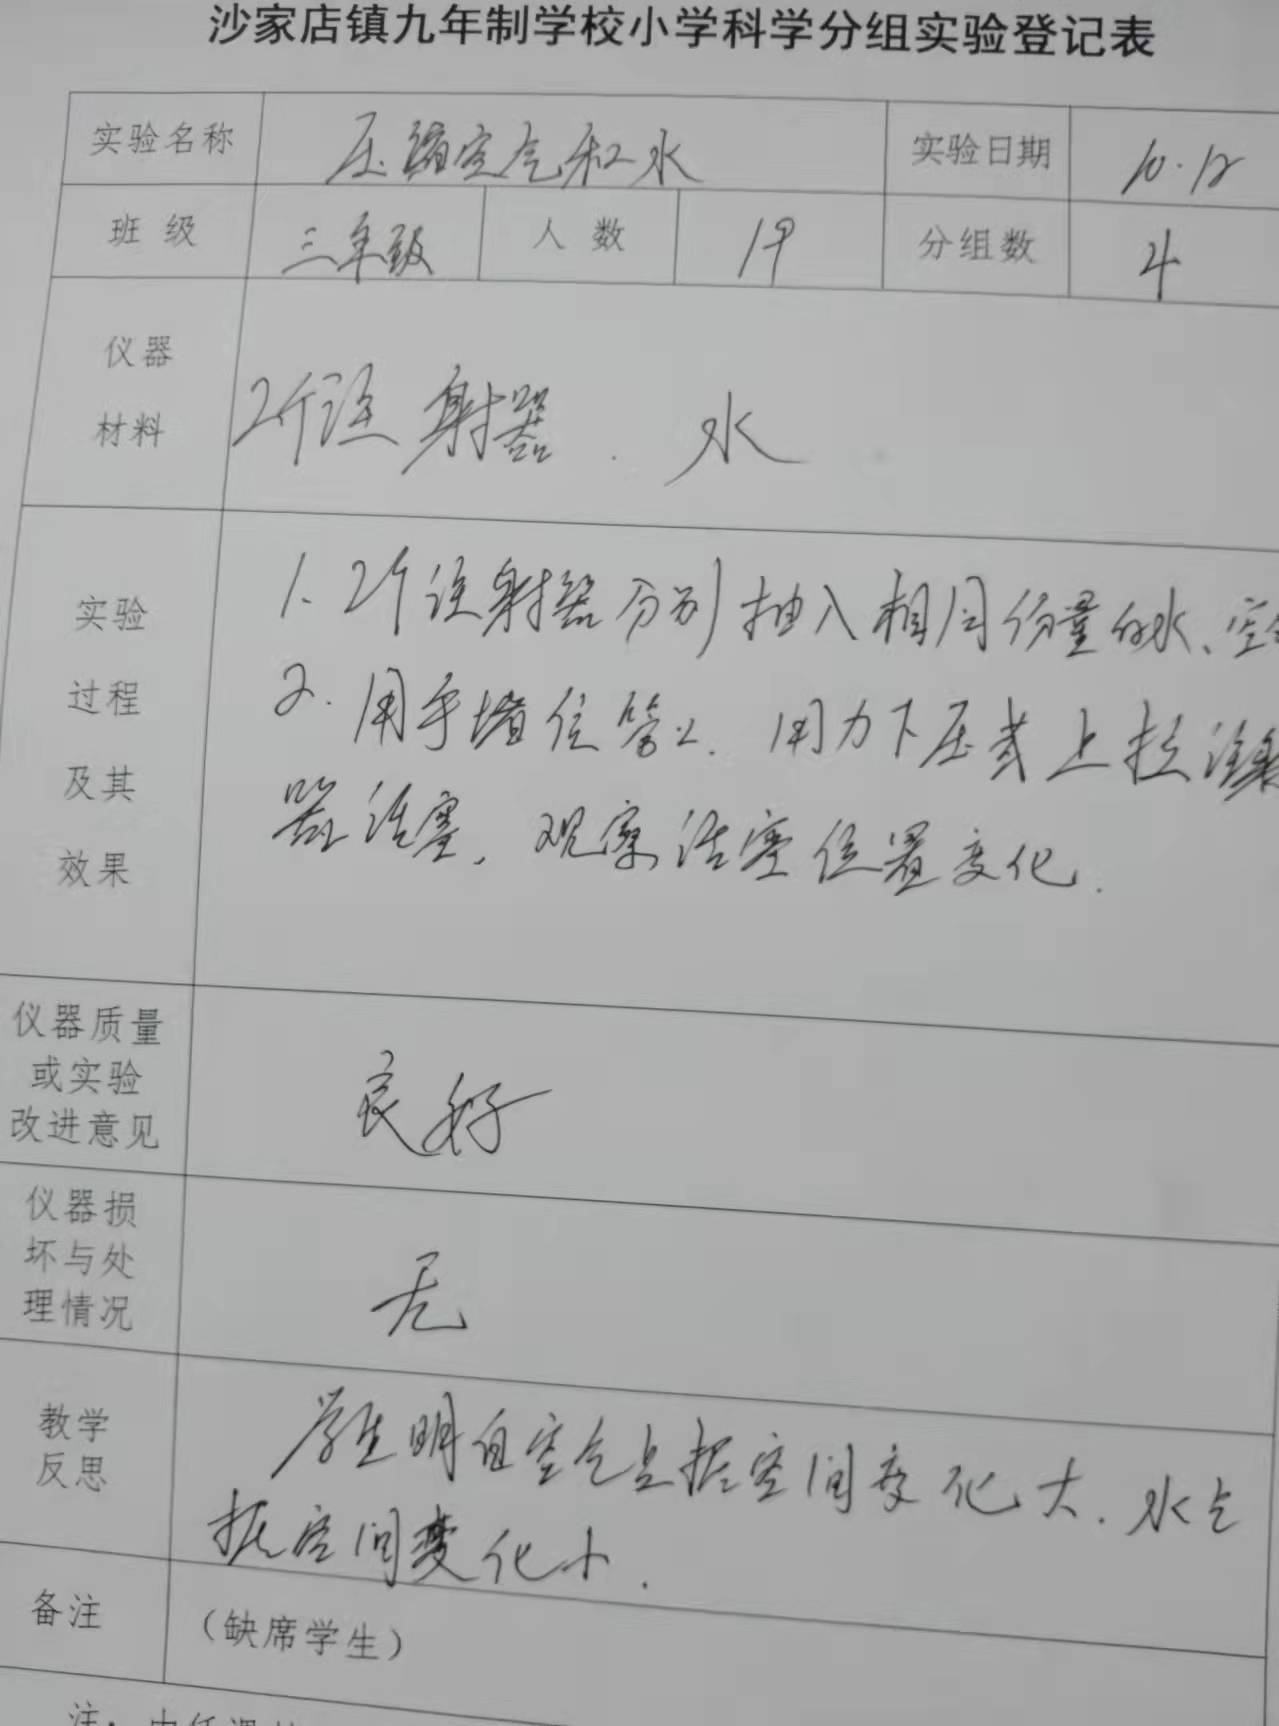 沙家店镇九年制学校小学科学分组实验登记表
实验名称 压缩空气和水 实验日期 10.12
班级 三年级 人数 19 分组数 4
仪器
材料
2个注射器. 水
实验
过程
及其
效果
1. 2个注射器分别抽入相同份量的水、空
2. 用手堵住管口. 用力下压或上拉注射
器活塞, 观察活塞位置变化.
仪器质量
或实验
改进意见
良好
仪器损
坏与处
理情况
无
教学
反思
学生明白空气占据空间变化大. 水占
据空间变化小.
备注 (缺席学生)
注: